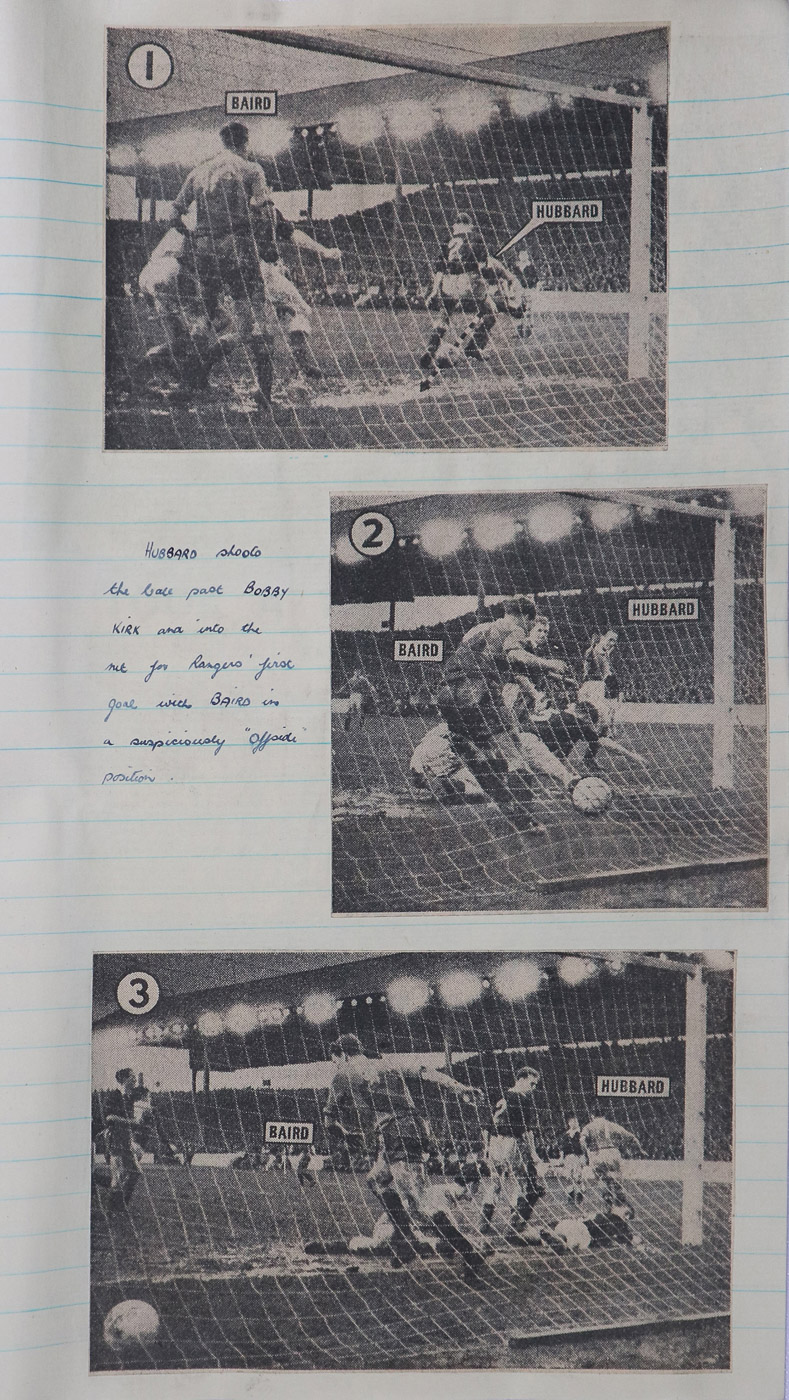 1
BAIRD
HUBBARD
2
HUBBARD
BAIRD
HUBBARD shoots
the ball past BOBBY
KIRK and into the
net for Rangers' first
goal with BAIRD in
a suspiciously "Offside"
position.
3
HUBBARD
BAIRD
2
2